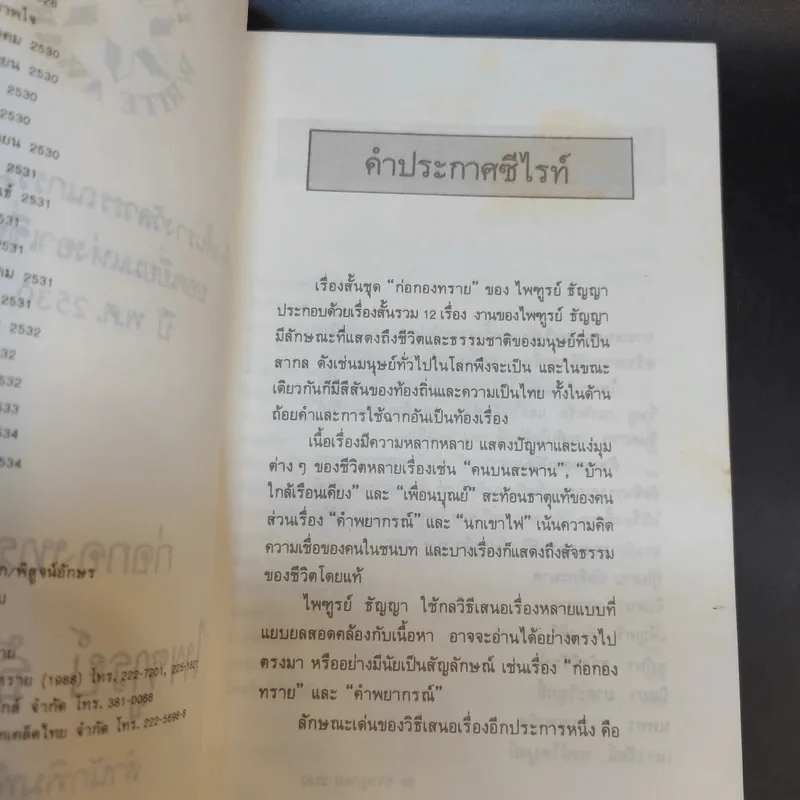 2530
2530
2530
2530
2531
2531
2531
2531
2531
2532
532
2532
2533
2534
2534
ก/พิสูจน์อักษร
ทราย (1988) โทร. 222-7201,
จำกัด โทร. 381-0068
เคล็ดไทย จำกัด โทร. 222-5698-8
คำประกาศซีไรท์
เรื่องสั้นชุด “ก่อกองทราย” ของ ไพฑูรย์ ธัญญา
ประกอบด้วยเรื่องสั้นรวม 12 เรื่อง งานของไพฑูรย์ ธัญญา
มีลักษณะที่แสดงถึงชีวิตและธรรมชาติของมนุษย์ที่เป็น
สากล ดังเช่นมนุษย์ทั่วไปในโลกพึงจะเป็น และในขณะ
เดียวกันก็มีสีสันของท้องถิ่นและความเป็นไทย ทั้งในด้าน
ถ้อยคำและการใช้ฉากอันเป็นท้องเรื่อง
เนื้อเรื่องมีความหลากหลาย แสดงปัญหาและแง่มุม
ต่าง ๆ ของชีวิตหลายเรื่องเช่น “คนบนสะพาน”, “บ้าน
ใกล้เรือนเคียง” และ “เพื่อนบุณย์” สะท้อนธาตุแท้ของคน
ส่วนเรื่อง “คำพยากรณ์” และ “นกเขาไฟ” เน้นความคิด
ความเชื่อของคนในชนบท และบางเรื่องก็แสดงถึงสัจธรรม
ของชีวิตโดยแท้
ไพฑูรย์ ธัญญา ใช้กลวิธีเสนอเรื่องหลายแบบที่
แยบยลสอดคล้องกับเนื้อหา อาจจะอ่านได้อย่างตรงไป
ตรงมา หรืออย่างมีนัยเป็นสัญลักษณ์ เช่นเรื่อง “ก่อกอง
ทราย” และ “คำพยากรณ์”
ลักษณะเด่นของวิธีเสนอเรื่องอีกประการหนึ่ง คือ